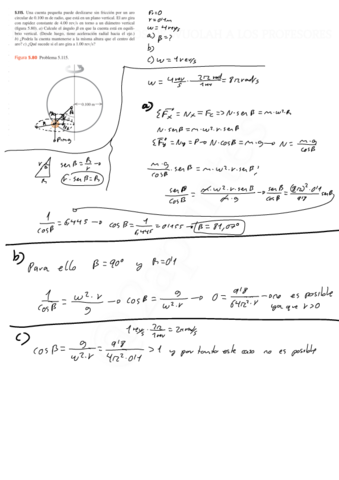 5.118. Una cuenta pequeña puede deslizarse sin fricción por un aro
circular de 0.100 m de radio, que está en un plano vertical. El aro gira
con rapidez constante de 4.00 rev/s en torno a un diámetro vertical
(figura 5.80). a) Calcule el ángulo β en que la cuenta está en equilibrio
vertical. (Desde luego, tiene aceleración radial hacia el eje.)
b) ¿Podría la cuenta mantenerse a la misma altura que el centro del
aro? c) ¿Qué sucede si el aro gira a 1.00 rev/s?
Figura 5.80 Problema 5.118.
r = 0.100 m
a) β=?
b)
c) w = 1 rev/s
w = 4 rev/s · 2π rad/1 rev = 8π rad/s
a)
N · senβ = m·w²·r·senβ
1/cosβ = 6'445 → cosβ = 1/6'445 = 0'155 → β = 81,07°
b)
Para ello β=90° y R=0'1
1/cosβ = w²·r/g → cosβ = g/w²·r → 0 = 9'8/64π²·r → no es posible
ya que r>0
c)
cosβ = g/w²·r = 9'8/4π²·0'1 > 1 y por tanto este caso no es posible